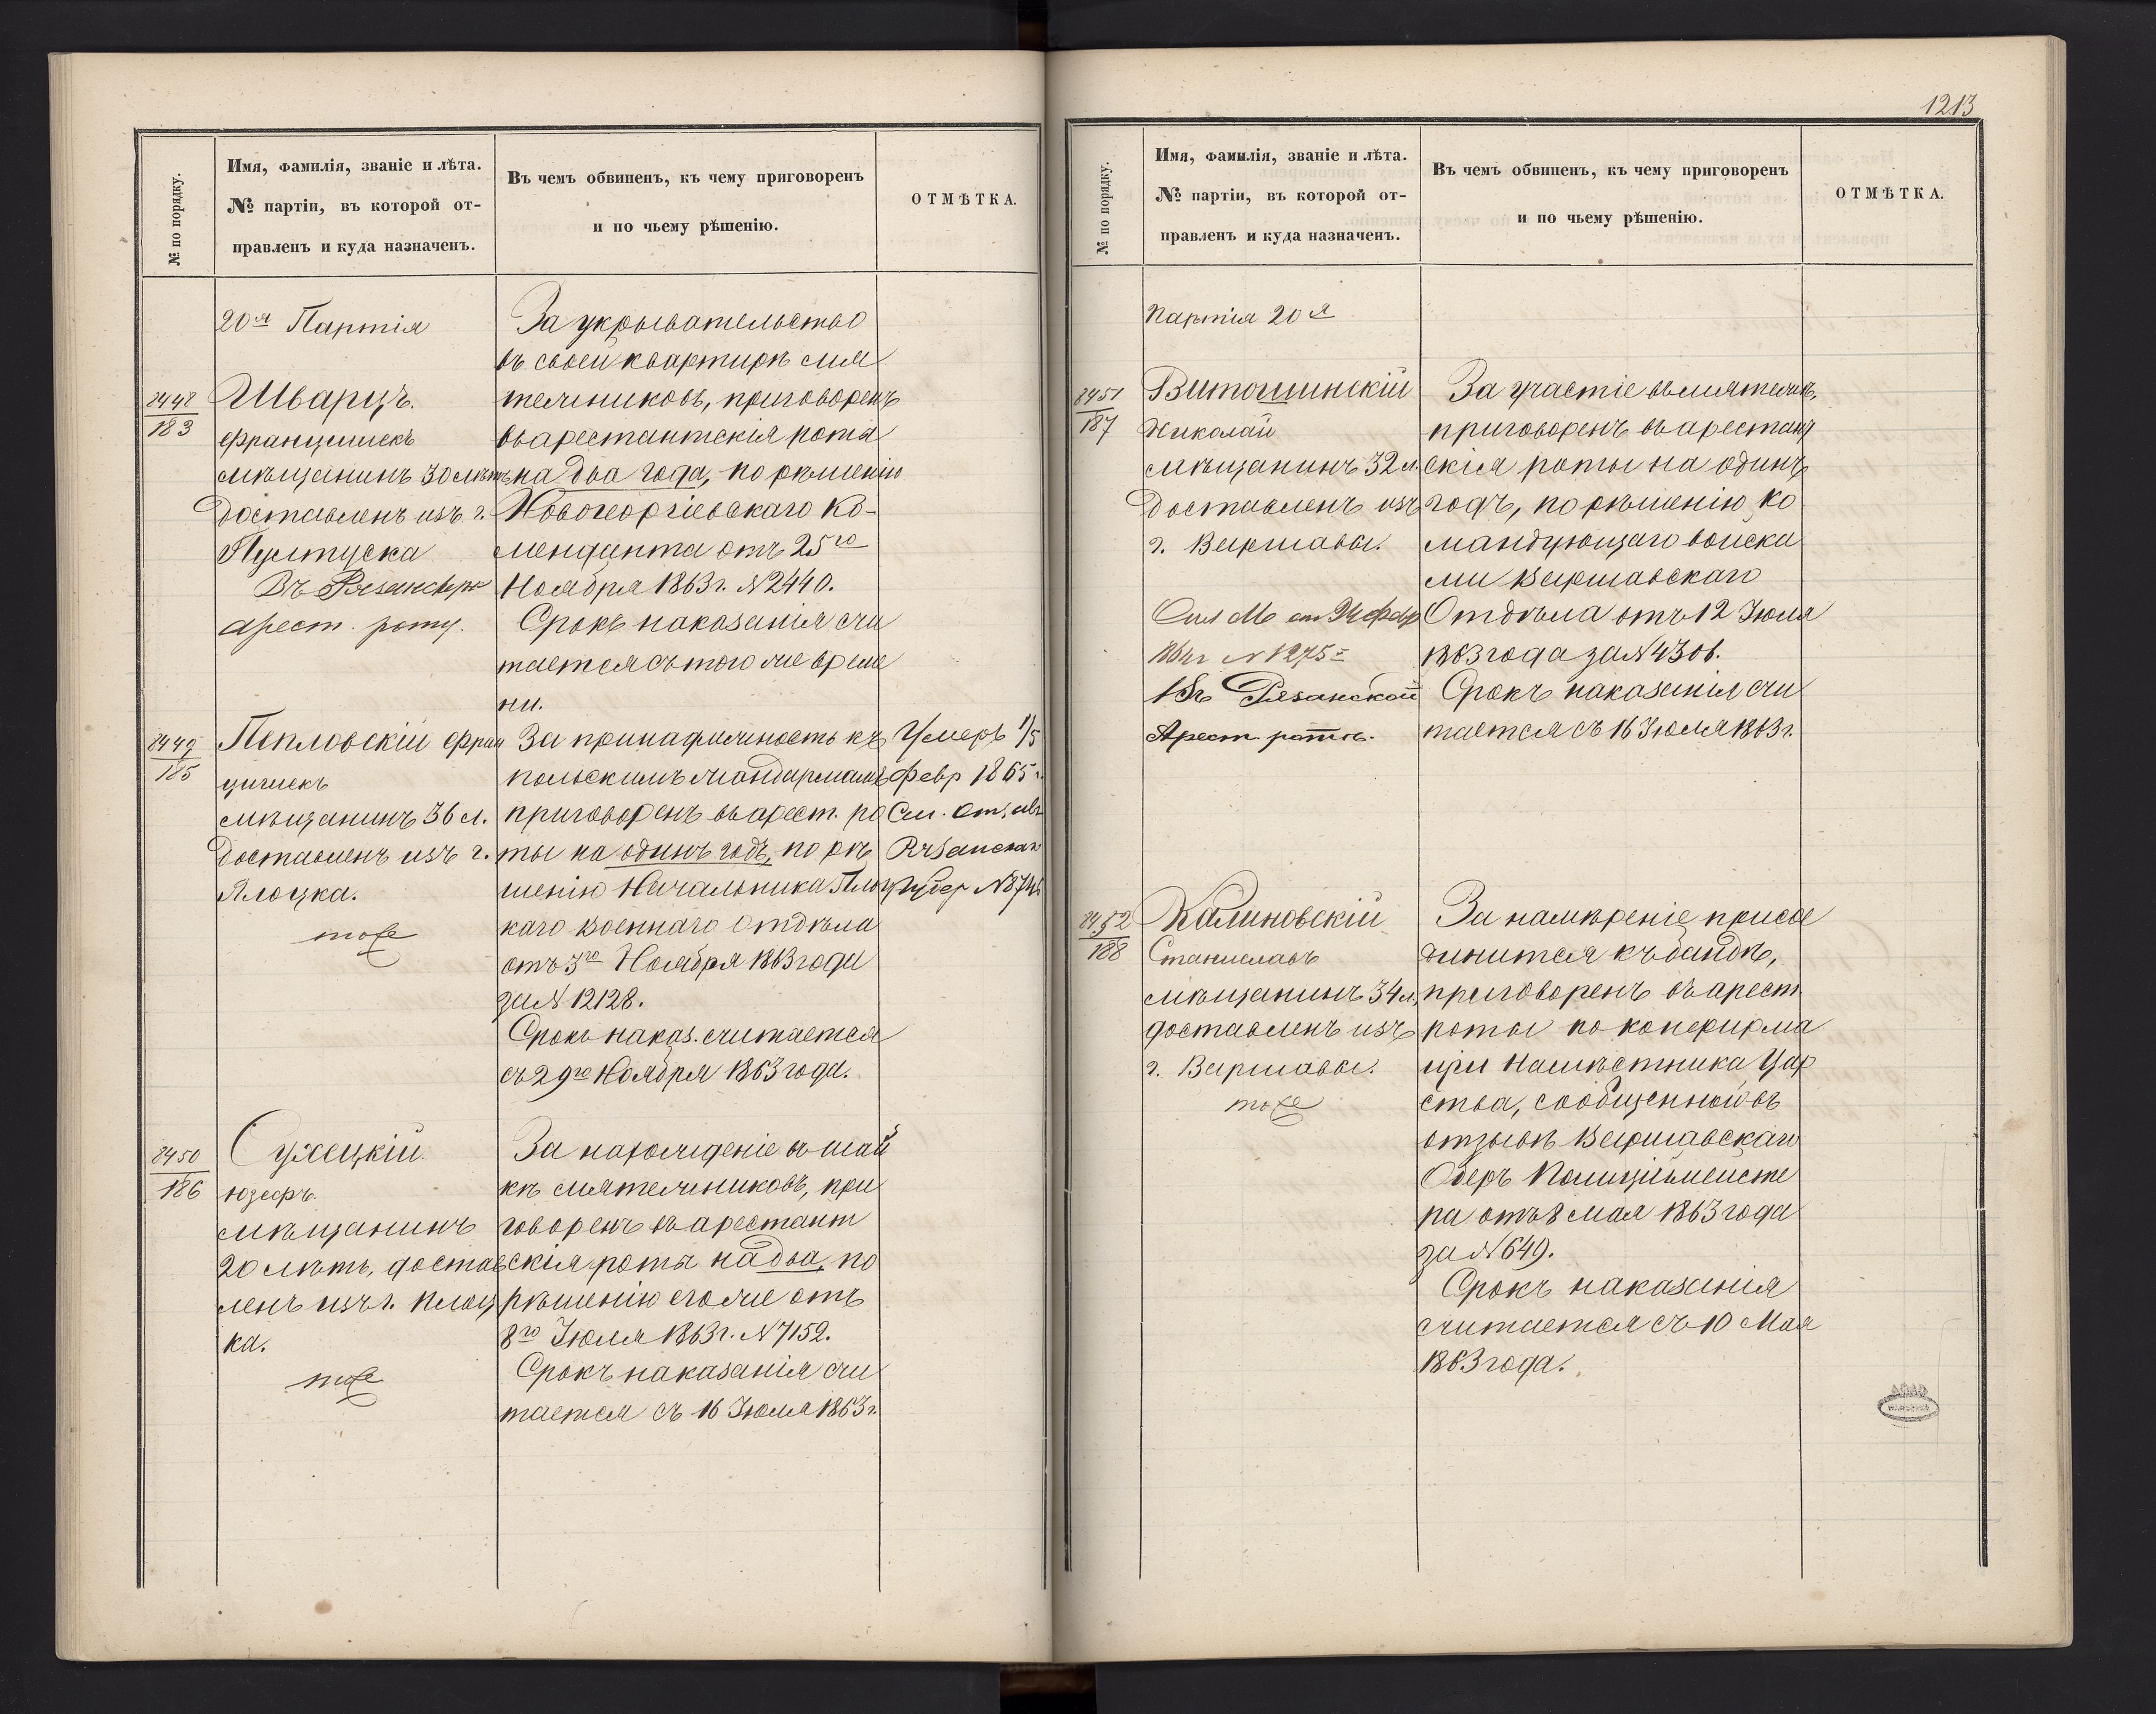 1213
№ по порядку.
Имя, фамилія, званіе и лѣта.
№ партіи, въ которой от-
правленъ и куда назначенъ.
Въ чемъ обвиненъ, къ чему приговоренъ
и по чьему рѣшенію.
ОТМѢТКА.
20я Партія
8448
183
Шварцъ.
Францишекъ
мѣщанинъ 30 лѣтъ
Доставленъ изъ г.
Пултуска
Въ Рязанскую
арест. роту.
За укрывательство
въ своей квартирѣ мя
тежниковъ, приговоренъ
въ арестантскія роты
на два года, по рѣшенію
Новогеоргіевскаго Ко-
менданта отъ 25го
Ноября 1863 г. №2440.
Срокъ наказанія счи
тается съ того же време
ни.
8449
185
Пепловскій Фран
цишекъ
мѣщанинъ 36 л.
Доставленъ изъ г.
Плоцка.
тоже
За принадлежность къ
польскимъ жандармамъ
приговоренъ въ арест. ро
ты на одинъ годъ, по рѣ
шенію Начальника Плоц
каго Военнаго Отдѣла
отъ 3го Ноября 1863 года
за № 12128.
Срокъ наказ. считается
съ 29го Ноября 1863 года.
Умеръ 1/5
Февр 1865 г.
См. Отзывъ
Рязанскаг
Губер №
8450
186
Сужецкій
Юзефъ.
мѣщанинъ
20 лѣтъ, достав
ленъ изъ г. Плоц
ка.
тоже
За нахожденіе въ шай
кѣ мятежниковъ, при
говоренъ въ арестант
скія роты на два, по
рѣшенію его же отъ
8го Іюля 1863 г. №7152.
Срокъ наказанія счи
тается съ 16 Іюля 1863 г.
№ по порядку.
Имя, фамилія, званіе и лѣта.
№ партіи, въ которой от-
правленъ и куда назначенъ.
Въ чемъ обвиненъ, къ чему приговоренъ
и по чьему рѣшенію.
ОТМѢТКА.
Партія 20я
8451
187
Витошинскій
Николай
мѣщанинъ 32 л.
Доставленъ изъ
г. Варшавы.
№ 1275
Въ Рязанской
Арест. ротѣ.
За участіе въ мятежѣ,
приговоренъ въ арестант
скія роты на одинъ
годъ, по рѣшенію Ко
мандующаго войска
ми Варшавскаго
Отдѣла отъ 12 Іюля
1863 года за №4306.
Срокъ наказанія счи
тается съ 16 Іюля 1863 г.
8452
188
Калиновскій
Станиславъ
мѣщанинъ 34 л,
доставленъ изъ
г. Варшавы.
тоже
За намѣреніе присое
динится къ бандѣ,
приговоренъ въ арест.
роты по конфирма
ціи Намѣстника Цар
ства, сообщенной въ
отзывѣ Варшавскаго
Оберъ Полиціймейсте
ра отъ 8 Мая 1863 года
за №649.
Срокъ наказанія
считается съ 10 Мая
1863 года.